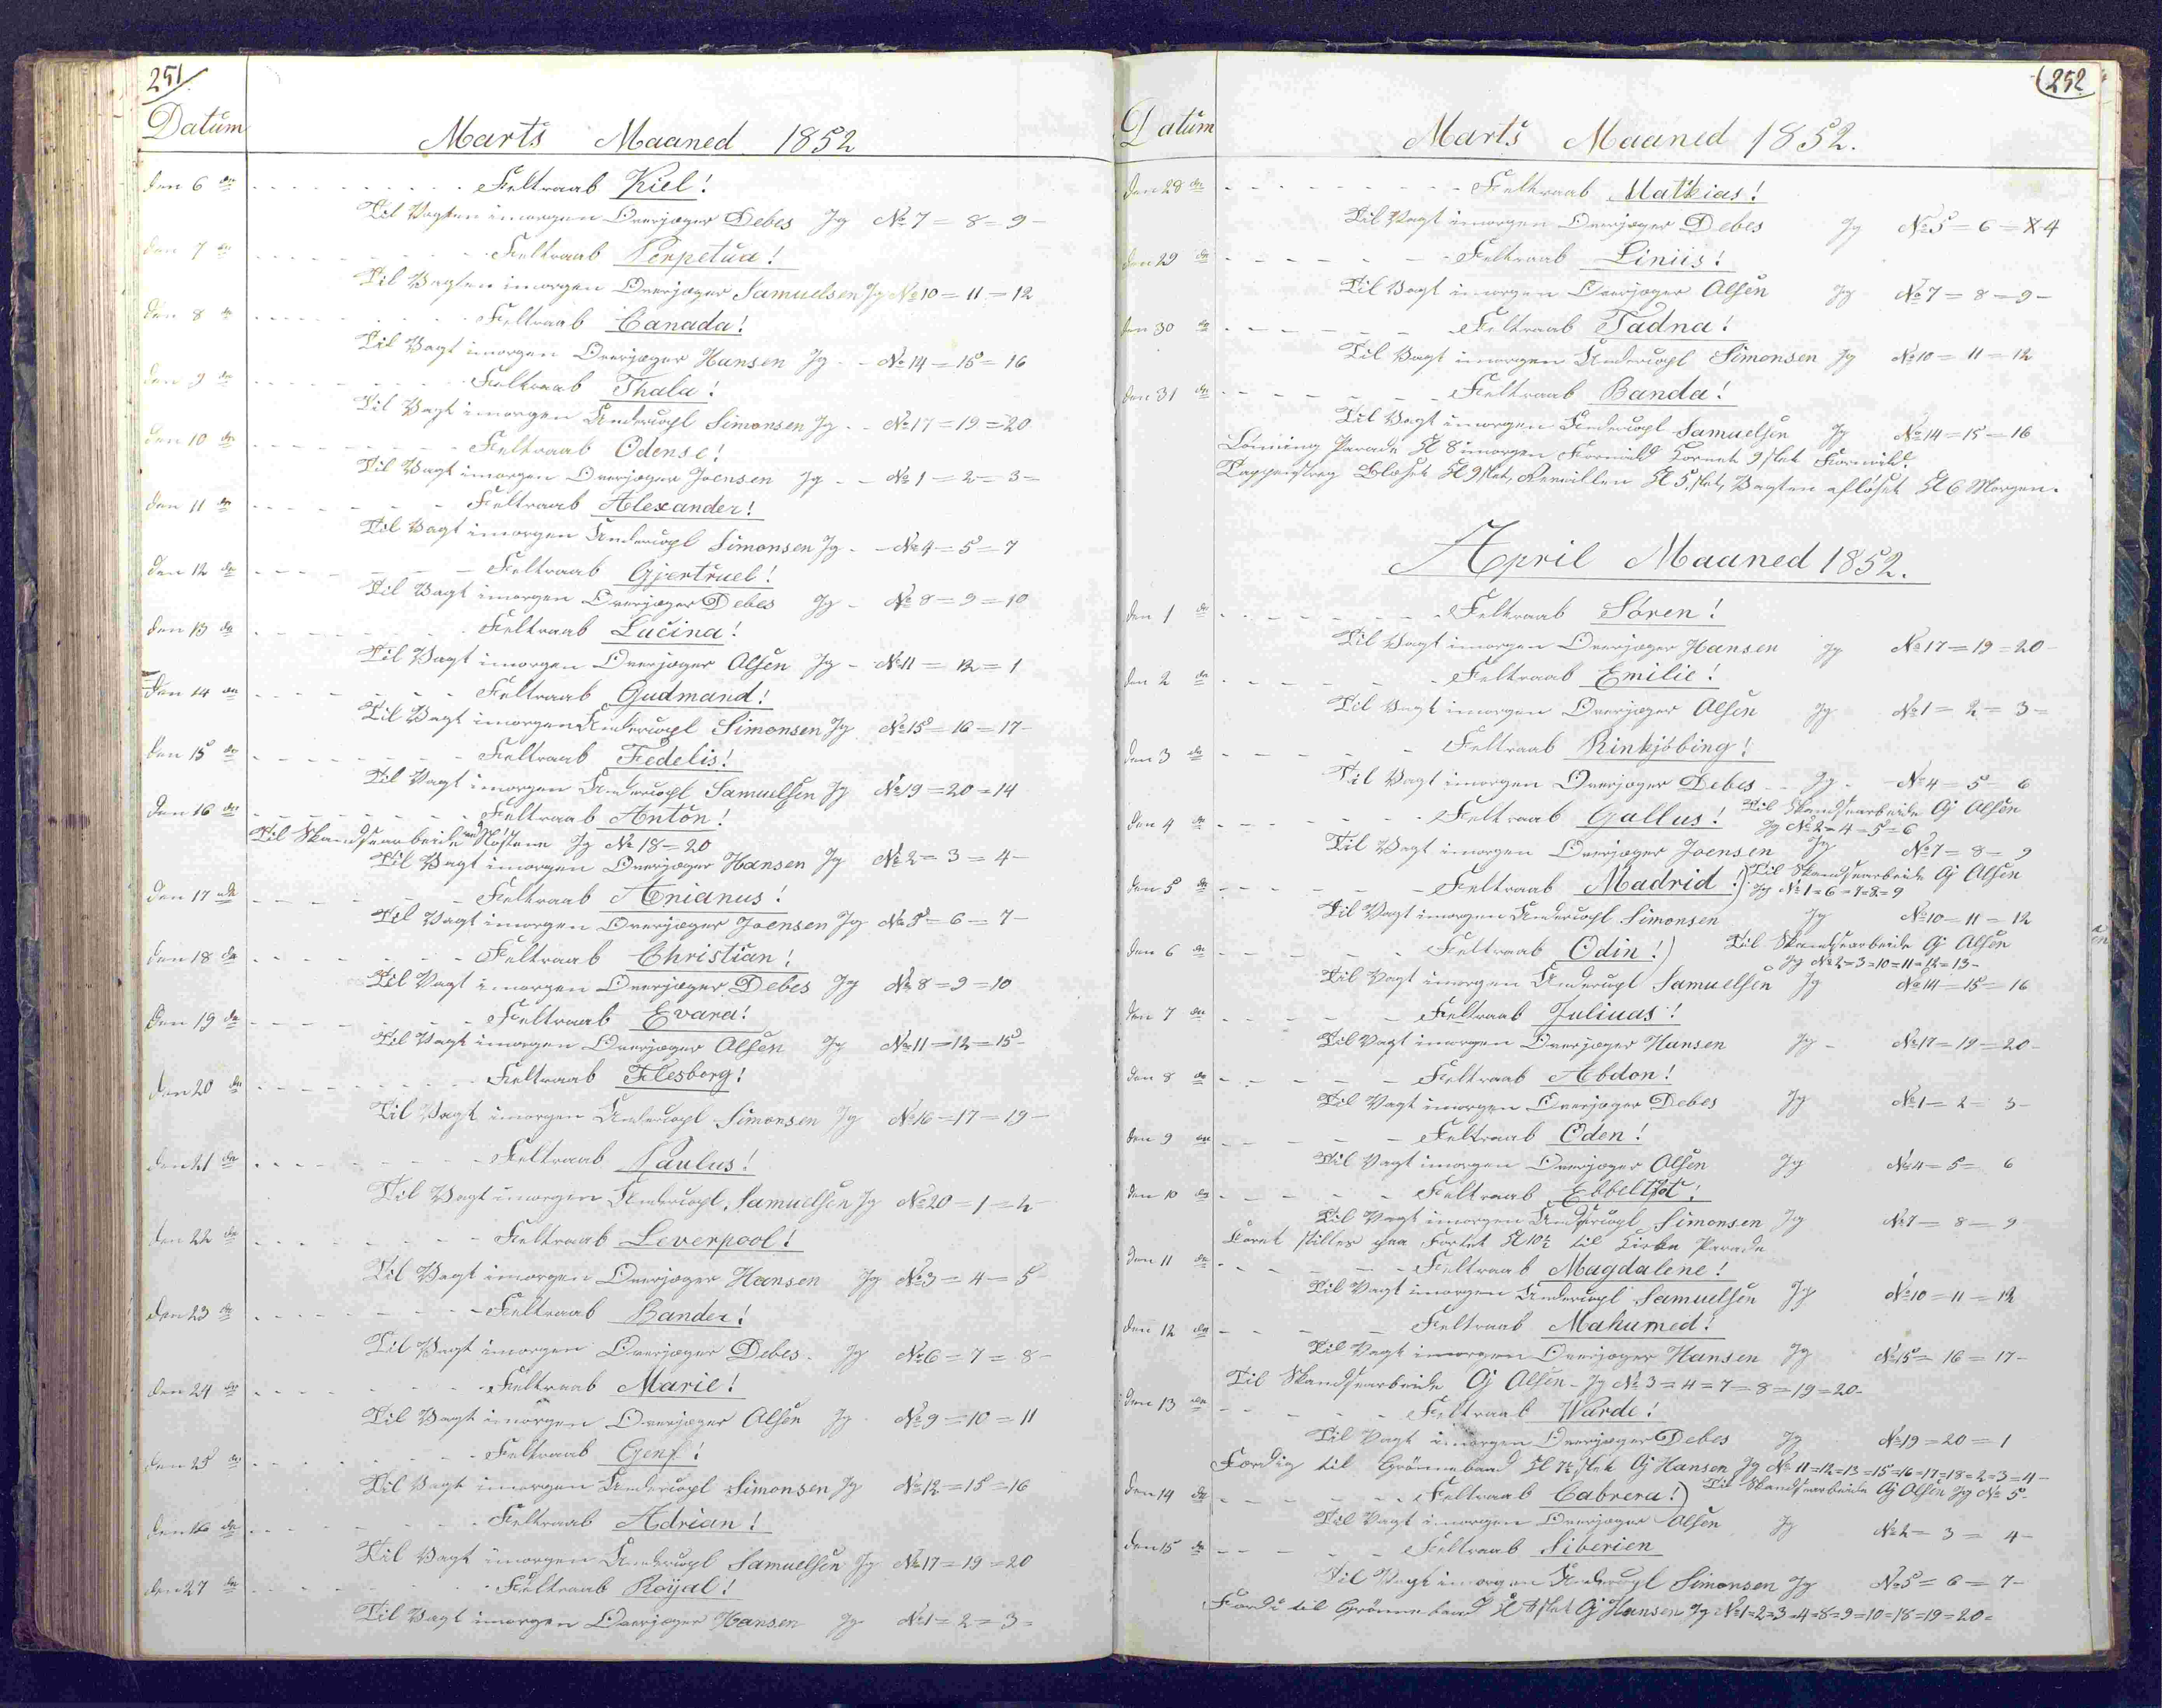 251.
Datum
Marts Maaned 1852
den 6 de Feltraab Kiel!
Til Vagten imorgen Overjæger Debes Jg № 7 = 8 = 9 -
den 7 de Feltraab Perpetua!
Til Vagten imorgen Overjæger Samuelsen Jg № 10 = 11 = 12
den 8 de Feltraab Canada!
Til Vagt imorgen Overjæger Hansen Jg - - № 14 = 15 = 16
den 9 de Feltraab Thala!
Til Vagt imorgen Undercpl Simonsen Jg - - № 17 = 19 = 20
den 10 de Feltraab Odense!
Til Vagt imorgen Overjæger Joensen Jg - - № 1 = 2 = 3 =
den 11 te Feltraab Alexander!
Til Vagt imorgen Undercpl Simonsen Jg - - № 4 = 5 = 7
den 12 de Feltraab Gjertruel!
Til Vagt imorgen Overjæger Debes Jg - № 8 = 9 = 10
den 13 de Feltraab Lucina!
Til Vagt imorgen Overjæger Olsen Jg - № 11 = 12 = 1
den 14 de Feltraab Gudmand!
Til Vagt imorgen Undercpl Simonsen Jg № 15 = 16 = 17 -
den 15 de Feltraab Fedelis!
Til Vagt imorgen Undercpl Samuelsen Jg № 19 = 20 = 14
den 16 de Feltraab Anton!
Til Skandsearbeide ved Nöstene Jg № 18 = 20
Til Vagt imorgen Overjæger Hansen Jg № 2 = 3 = 4 -
den 17 de Feltraab Anianus!
Til Vagt imorgen Overjæger Joensen Jg № 5 = 6 = 7 -
den 18 de Feltraab Christian!
Til Vagt imorgen Overjæger Debes Jg № 8 = 9 = 10
den 19 de Feltraab Evara!
Til Vagt imorgen Overjæger Olsen Jg № 11 = 12 = 15 -
den 20 de Feltraab Flesborg!
Til Vagt imorgen Undercpl Simonsen Jg № 16 = 17 = 19 -
den 21 de Feltraab Paulus!
Til Vagt imorgen Undercpl Samuelsen Jg № 20 = 1 = 2
den 22 de Feltraab Leverpool!
Til Vagt imorgen Overjæger Hansen Jg № 3 = 4 = 5
den 23 de Feltraab Bander!
Til Vagt imorgen Overjæger Debes - Jg № 6 = 7 = 8 -
den 24 de Feltraab Marie!
Til Vagt imorgen Overjæger Olsen Jg № 9 = 10 = 11
den 25 de Feltraab Genf!
Til Vagt imorgen Undercpl Simonsen Jg № 12 = 15 = 16
den 26 de Feltraab Adrian!
Til Vagt imorgen Undercpl Samuelsen Jg № 17 = 19 = 20
den 27 de Feltraab Royal!
Til Vagt imorgen Overjæger Hansen Jg № 1 = 2 = 3 =
252
Datum
Marts Maaned 1852.
den 28 de Feltraab Mathias!
Til Vagt imorgen Overjæger Debes Jg № 5 = 6 = 4
den 29 de Feltraab Liniis!
Til Vagt imorgen Overjæger Olsen Jg № 7 = 8 = 9 -
den 30 de Feltraab Tadna!
Til Vagt imorgen Undercpl Simonsen Jg № 10 = 11 = 12
den 31 de Feltraab Banda!
Til Vagt imorgen Undercpl Samuelsen Jg № 14 = 15 = 16
Lönning Parade Kl 8 imorgen Formid Kornet 9 slet Formid.
Tappenstreg Blæset Kl 9 slet, Revaillen Kl 5 slet, Vagten aflöset Kl 6 Morgen.
April Maaned 1852.
den 1 de Feltraab Sören!
Til Vagt imorgen Overjæger Hansen Jg № 17 = 19 = 20 -
den 2 de Feltraab Emilie!
Til Vagt imorgen Overjæger Olsen Jg № 1 = 2 = 3 =
den 3 de Feltraab Rinkjöbing!
Til Vagt imorgen Overjæger Debes - - Jg - - № 4 = 5 = 6
den 4 de Feltraab Gallus! Til Skandsearbeide Oj Olsen
Jg № 2 = 4 = 5 = 6
Til Vagt imorgen Overjæger Joensen Jg № 7 = 8 = 9
den 5 de Feltraab Madrid!) Til Skandsearbeide Oj Olsen
Jg № 1 = 6 = 7 = 8 = 9
Til Vagt imorgen Undercpl Simonsen Jg № 10 = 11 = 12
den 6 de Feltraab Odin!) Til Skandsearbeide Oj Olsen
Jg № 2 = 3 = 10 = 11 = 12 = 13 -
Til Vagt imorgen Undercpl Samuelsen Jg № 14 = 15 = 16
den 7 de Feltraab Juliuas!
Til Vagt imorgen Overjæger Hansen Jg - № 17 = 19 = 20 -
den 8 de Feltraab Abdon!
Til Vagt imorgen Overjæger Debes Jg № 1 = 2 = 3 -
den 9 de Feltraab Oden!
Til Vagt imorgen Overjæger Olsen Jg № 4 = 5 = 6
den 10 de Feltraab Ebbeltot!
Til Vagt imorgen Undercpl Simonsen Jg № 7 = 8 = 9
Coret stilles paa Fortet Kl 10½ til Kirke Parade
den 11 de Feltraab Magdalene!
Til Vagt imorgen Undercpl Samuelsen Jg № 10 = 11 = 12
den 12 de Feltraab Mahumed!
Til Vagt imorgen Overjæger Hansen Jg № 15 = 16 = 17 -
Til Skandsearbeide Oj Olsen - Jg № 3 = 4 = 7 = 8 = 19 = 20 -
den 13 de Feltraab Warde!
Til Vagt imorgen Overjæger Debes Jg № 19 = 20 = 1
Færdig til Grönnebaad Kl 7½ slet Oj Hansen Jg № 11 = 12 = 13 = 15 = 16 = 17 = 18 = 2 = 3 = 4 -
den 14 de Feltraab Cabrera!) Til Skandsearbeide Oj Olsen Jg № 5 -
Til Vagt imorgen Overjæger Olsen Jg № 2 = 3 = 4 -
den 15 de Feltraab Siberien
Til Vagt imorgen Undercpl Simonsen Jg № 5 = 6 = 7 -
til Grönnebaad Kl slet Oj Hansen Jg № 1 = 2 = 3 = 4 = 8 = 9 = 10 = 18 = 19 = 20 =